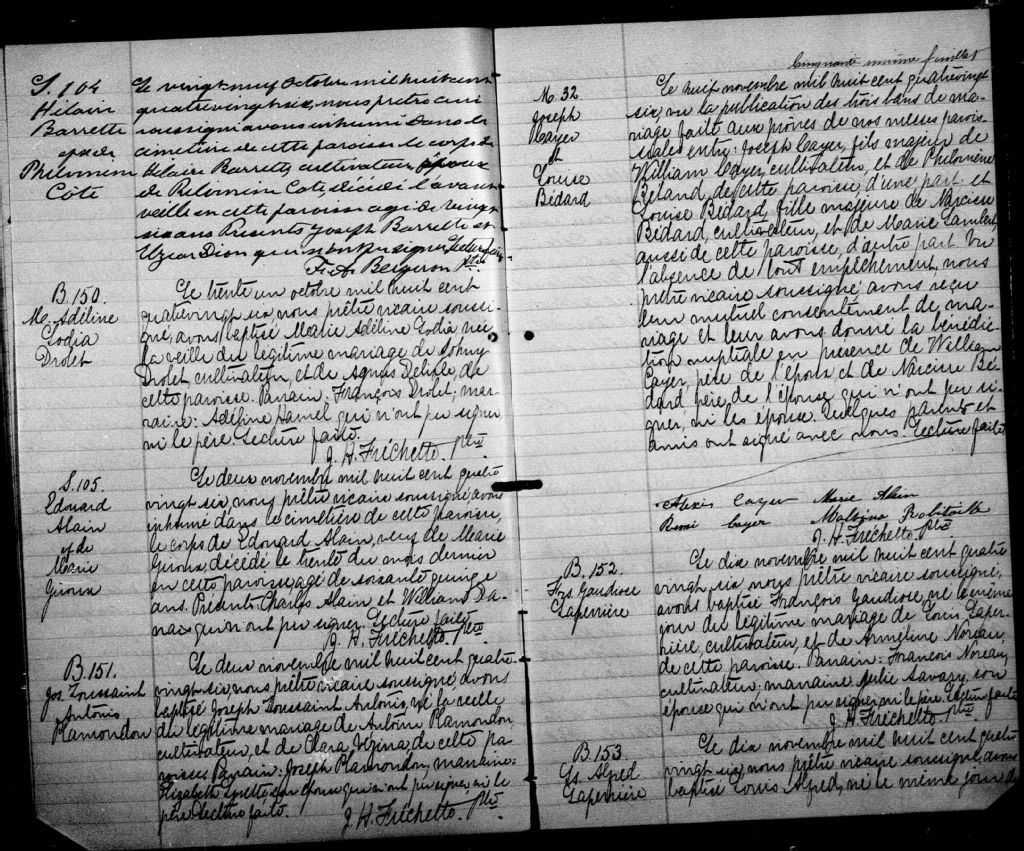 S. 104
Hilair
Barrette
époux de
Philomene
Côté
Le vingt neuf Octobre mil huit cent
quatre vingt six, nous pretre curé
soussigné avons inhumé dans le
cimetière de cette paroisse le corps de
Hilaire Barrette cultivateur époux
de Pilomène Coté, décédé l'avant
veille en cette paroisse agé de vingt
six ans Presents Joseph Barrette et
Dion qui n'ont su signer Lecture faite
Bergeron Ptre
B. 150.
M. Adéline
Lodia
Drolet
Le trente un octobre mil huit cent
quatrevingt six nous prêtre vicaire soussi-
gné, avons baptisé Marie Adéline Lodia née
la veille du légitime mariage de Johny
Drolet, cultivateur, et de Agnès Delisle, de
cette paroisse. Parrain: François Drolet; mar-
raine: Adéline Hamel qui n'ont pu signer
ni le père Lecture faite.
J. H. Fréchette. Ptre
S. 105.
Edouard
Alain
et de
Marie
Giroux
Le deux novembre mil huit cent quatre
vingt six, nous prêtre vicaire soussigné avons
inhumé dans le cimetière de cette paroisse,
le corps de Edouard Alain, veuf de Marie
Giroux, décédé le trente du mois dernier
en cette paroisse, agé de soixante quinze
ans. Présents Charles Alain et William Da-
nais qui n'ont pu signer Lecture faite
J. H. Fréchette. Ptre
B. 151.
Jos. Toussaint
Antonio
Plamondon
Le deux novembre mil huit cent quatre-
vingt-six, nous prêtre vicaire soussigné, avons
baptisé Joseph Toussaint Antonio, né la veille
du légitime mariage de Antoine Plamondon
cultivateur, et de Clara Vézina, de cette pa-
roisse. Parrain: Joseph Plamondon, marraine:
Elizabeth son épouse qui n'ont pu signer ni le
père Lecture faite.
J. H. Fréchette. Ptre
Cinquante feuillet
M. 32
Joseph
Cayer
et
Louise
Bédard
Le huit novembre mil huit cent quatrevingt
six, vu la publication des trois bans de ma-
riage faite aux prônes de nos messes parois-
siales entre: Joseph Cayer, fils majeur de
William Cayer, cultivateur, et de Philomène
Beland, de cette paroisse, d'une part et
Louise Bédard, fille majeure de Narcisse
Bédard, cultivateur, et de Marie Lambert,
aussi de cette paroisse, d'autre part. Vu
l'absence de tout empêchement, nous
prêtre vicaire soussigné avons reçu
leur mutuel consentement de ma-
riage et leur avons donné la bénédic-
tion nuptiale en présence de William
Cayer, père de l'époux et de Narcisse Bé-
dard père de l'épouse qui n'ont pu si-
gner, ni les époux. Quelques parents et
amis ont signé avec nous. Lecture faite
Alexis Cayer Marie Alain
Rémi Cayer Malvina Robitaille
J. H. Fréchette ptre
B. 152.
Frs. Gaudiose
Laperrière
Le dix novembre mil huit cent quatre
vingt six nous prêtre vicaire soussigné,
avons baptisé François Gaudiose, né le même
jour du légitime mariage de Louis Laper-
rière, cultivateur, et de Armeline Noreau,
de cette paroisse. Parrain: François Noreau,
cultivateur; marraine Julie Savary, son
épouse qui n'ont pu signer ni le père. Lecture faite
J. H. Fréchette Ptre
B. 153
Ls. Alfred
Laperrière
Le dix novembre mil huit cent quatre
vingt six nous prêtre vicaire soussigné, avons
baptisé Louis Alfred, né le même jour du